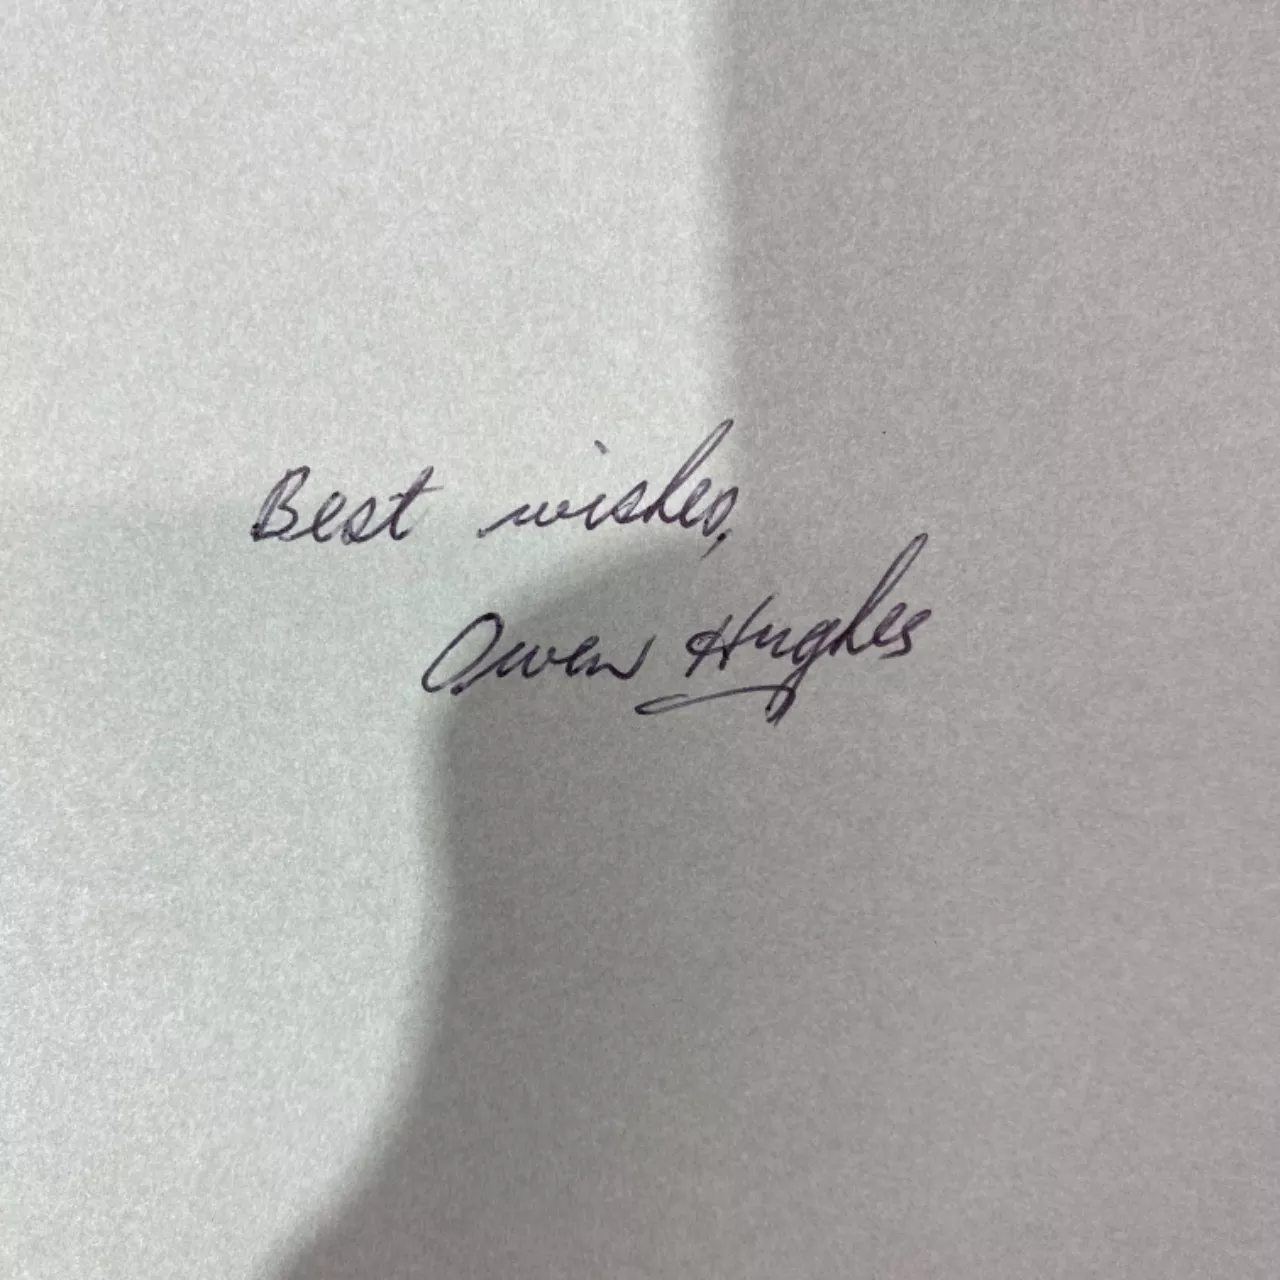 Best wishes,
Owen Hughes